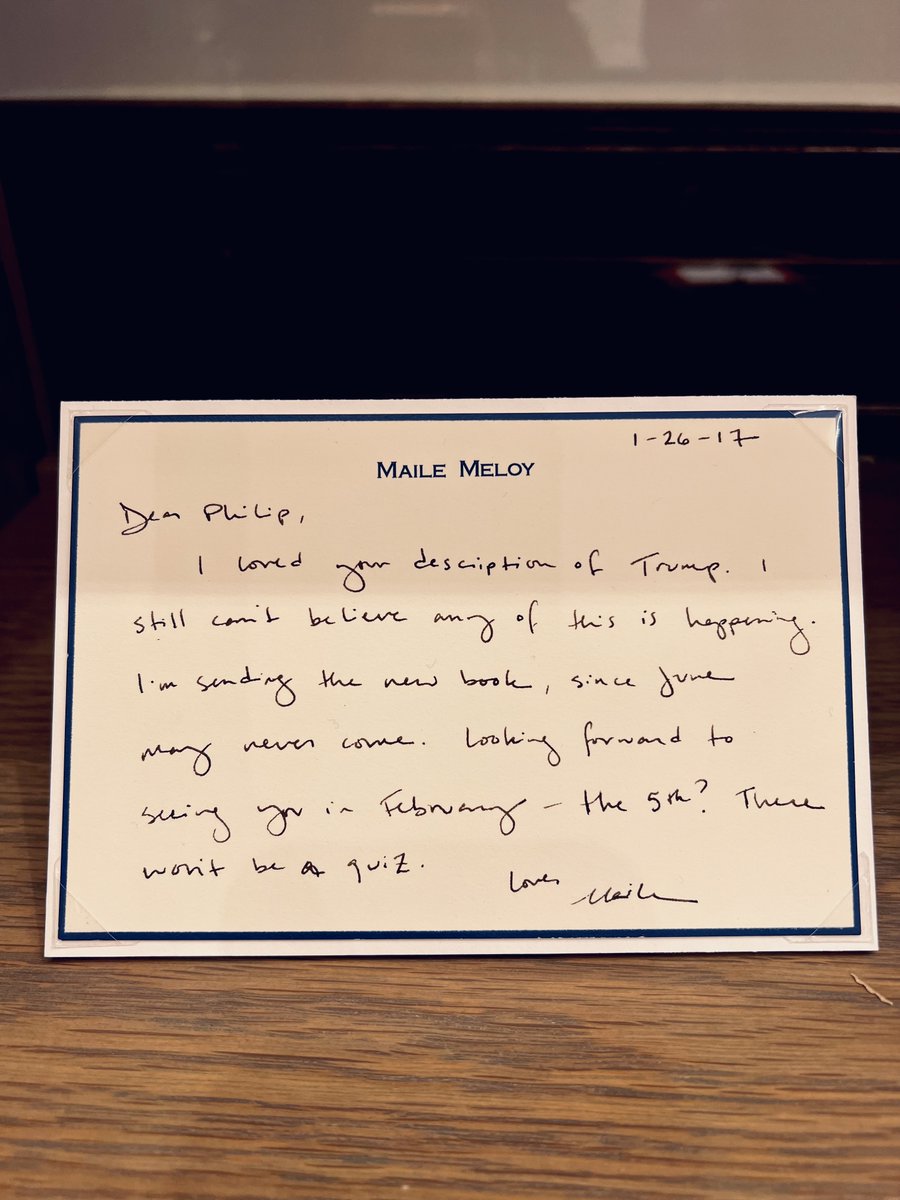 1-26-17
MAILE MELOY
Dear Philip,
I loved your description of Trump. I
still can't believe any of this is happening.
I'm sending the new book, since June
may never come. Looking forward to
seeing you in February – the 5th? There
won't be a quiz.
Love,
Maile